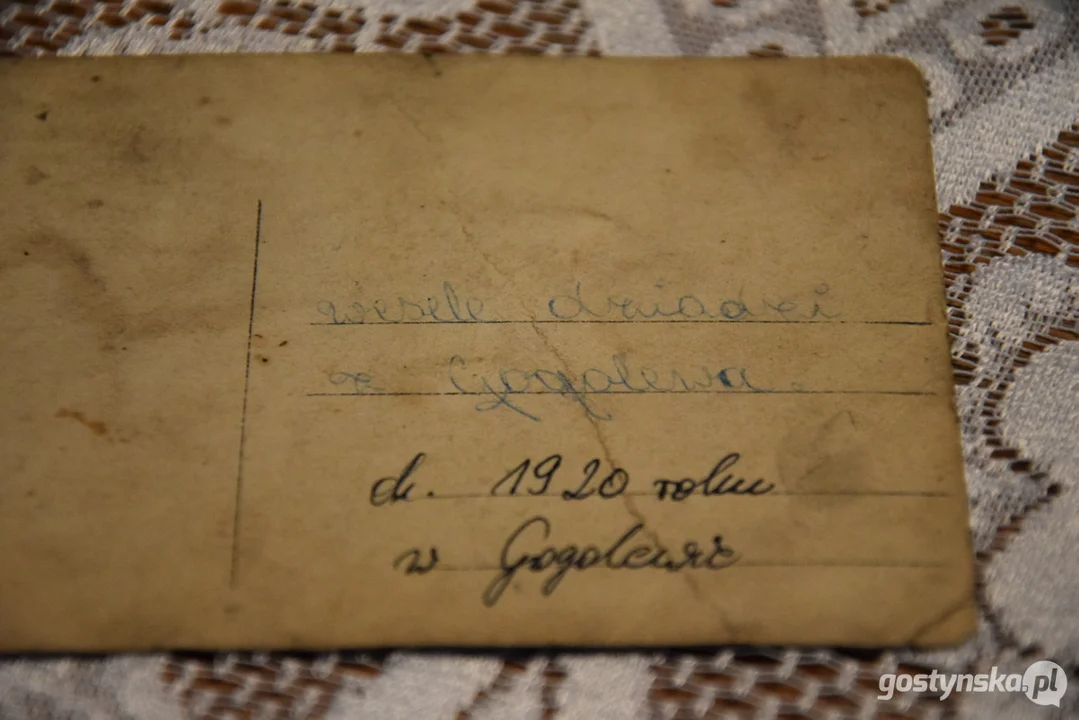 wesele dziadzi
z Gogolewa.
ok. 1920 roku
w Gogolewie
gostynska.pl